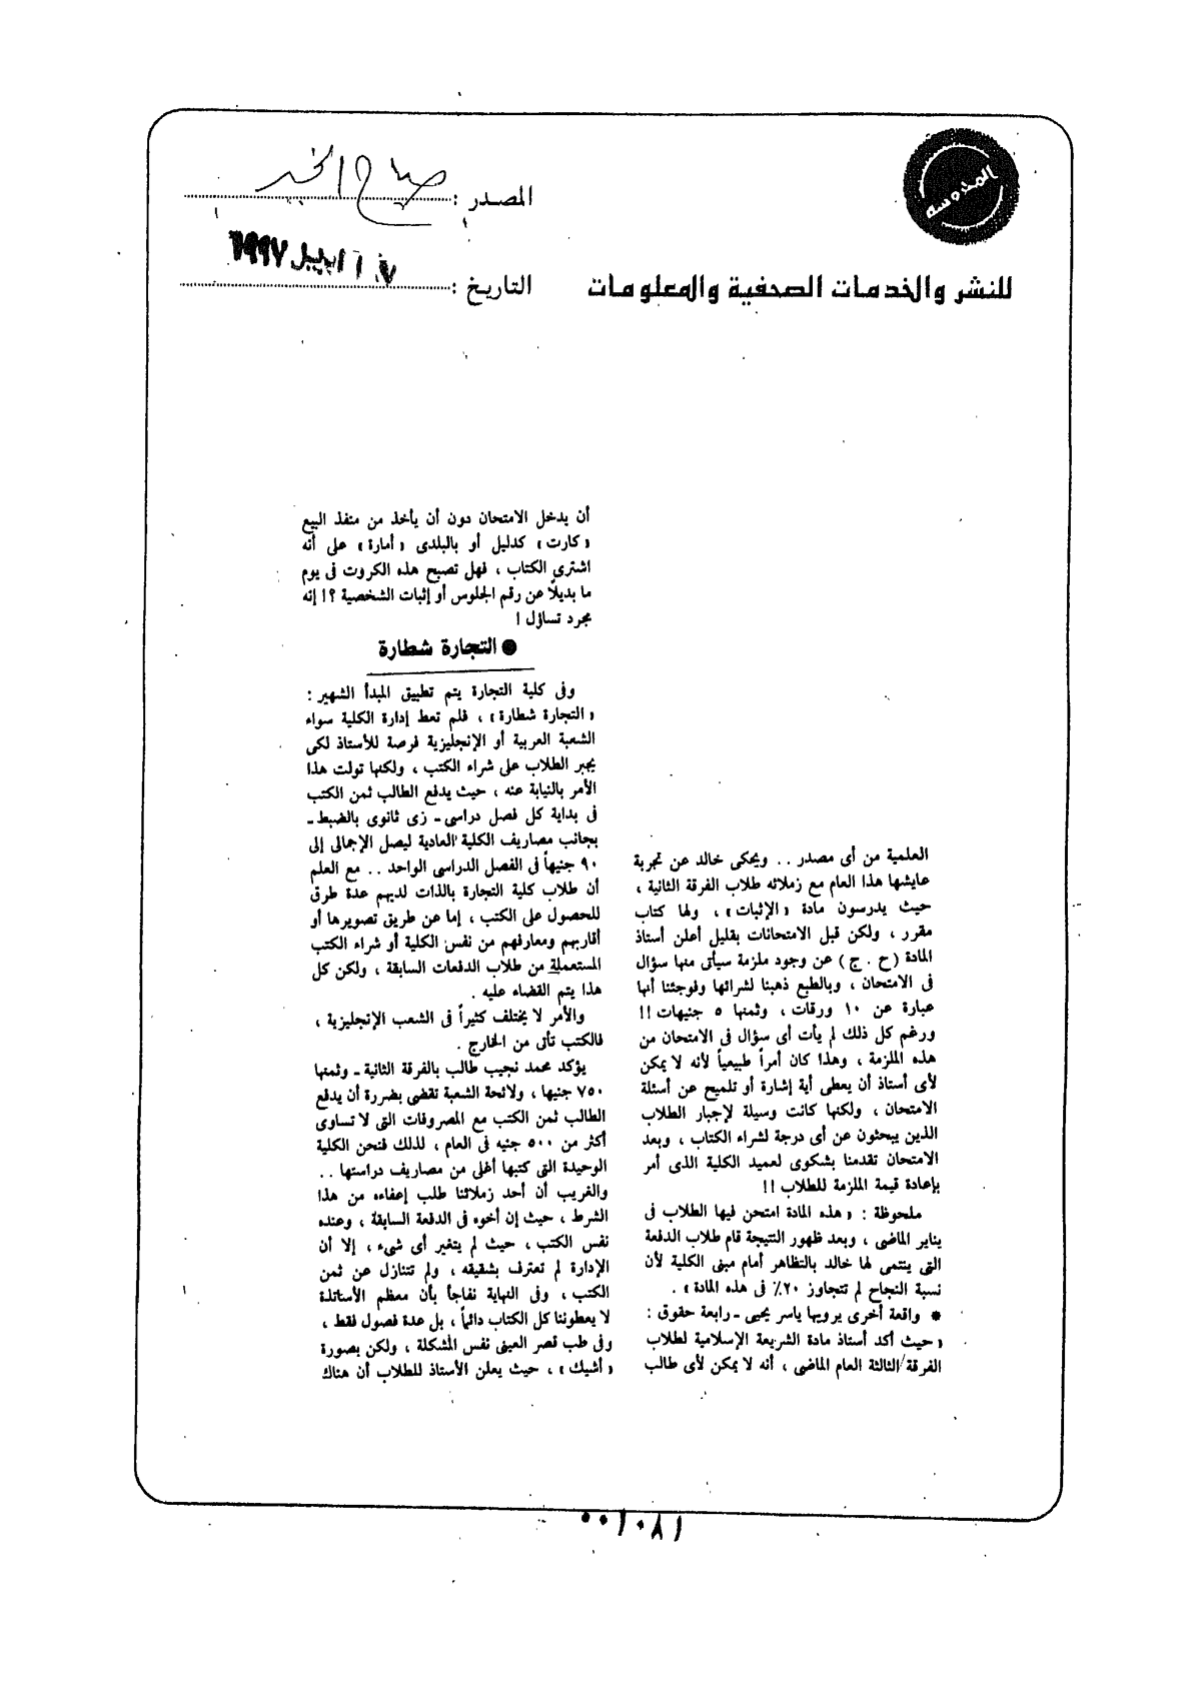 المحروسة
للنشر والخدمات الصحفية والمعلومات
المصدر : صباح الخير
التاريخ : ابريل ١٩٩٧
العلمية من أى مصدر .. ويحكى خالد عن تجربة
عايشها هذا العام مع زملائه طلاب الفرقة الثانية ،
حيث يدرسون مادة «الإثبات» ، ولها كتاب
مقرر ، ولكن قبل الامتحانات بقليل أعلن أستاذ
المادة (ح . ج) عن وجود ملزمة سيأتى منها سؤال
فى الامتحان ، وبالطبع ذهبنا لشرائها وفوجئنا أنها
عبارة عن ١٠ ورقات ، وثمنها ٥ جنيهات !!
ورغم كل ذلك لم يأت أى سؤال فى الامتحان من
هذه الملزمة ، وهذا كان أمراً طبيعياً لأنه لا يمكن
لأى أستاذ أن يعطى أية إشارة أو تلميح عن أسئلة
الامتحان ، ولكنها كانت وسيلة لإجبار الطلاب
الذين يبحثون عن أى درجة لشراء الكتاب ، وبعد
الامتحان تقدمنا بشكوى لعميد الكلية الذى أمر
بإعادة قيمة الملزمة للطلاب !!
ملحوظة : «هذه المادة امتحن فيها الطلاب فى
يناير الماضى ، وبعد ظهور النتيجة قام طلاب الدفعة
التى ينتمى لها خالد بالتظاهر أمام مبنى الكلية لأن
نسبة النجاح لم تتجاوز ٢٠٪ فى هذه المادة» .
* واقعة أخرى يرويها ياسر يحيى ـ رابعة حقوق :
«حيث أكد أستاذ مادة الشريعة الإسلامية لطلاب
الفرقة الثالثة العام الماضى ، أنه لا يمكن لأى طالب
أن يدخل الامتحان دون أن يأخذ من منفذ البيع
«كارت» كدليل أو بالبلدى «أمارة» على أنه
اشترى الكتاب ، فهل تصبح هذه الكروت فى يوم
ما بديلاً عن رقم الجلوس أو إثبات الشخصية ؟! إنه
مجرد تساؤل !
● التجارة شطارة
وفى كلية التجارة يتم تطبيق المبدأ الشهير :
«التجارة شطارة» ، فلم تعط إدارة الكلية سواء
الشعبة العربية أو الإنجليزية فرصة للأستاذ لكى
يجبر الطلاب على شراء الكتب ، ولكنها تولت هذا
الأمر بالنيابة عنه ، حيث يدفع الطالب ثمن الكتب
فى بداية كل فصل دراسى ـ زى ثانوى بالضبط ـ
بجانب مصاريف الكلية العادية ليصل الإجمالى إلى
٩٠ جنيهاً فى الفصل الدراسى الواحد .. مع العلم
أن طلاب كلية التجارة بالذات لديهم عدة طرق
للحصول على الكتب ، إما عن طريق تصويرها أو
أقاربهم ومعارفهم من نفس الكلية أو شراء الكتب
المستعملة من طلاب الدفعات السابقة ، ولكن كل
هذا يتم القضاء عليه .
والأمر لا يختلف كثيراً فى الشعب الإنجليزية ،
فالكتب تأتى من الخارج .
يؤكد محمد نجيب طالب بالفرقة الثانية ـ وثمنها
٧٥٠ جنيها ، ولائحة الشعبة تقضى بضررة أن يدفع
الطالب ثمن الكتب مع المصروفات التى لا تساوى
أكثر من ٥٠٠ جنيه فى العام ، لذلك فنحن الكلية
الوحيدة التى كتبها أغلى من مصاريف دراستها ..
والغريب أن أحد زملائنا طلب إعفاءه من هذا
الشرط ، حيث إن أخوه فى الدفعة السابقة ، وعنده
نفس الكتب ، حيث لم يتغير أى شىء ، إلا أن
الإدارة لم تعترف بشقيقه ، ولم تتنازل عن ثمن
الكتب ، وفى النهاية نفاجأ بأن معظم الأساتذة
لا يعطوننا كل الكتاب دائماً ، بل عدة فصول فقط ،
وفى طب قصر العينى نفس المشكلة ، ولكن بصورة
«أشيك» ، حيث يعلن الأستاذ للطلاب أن هناك